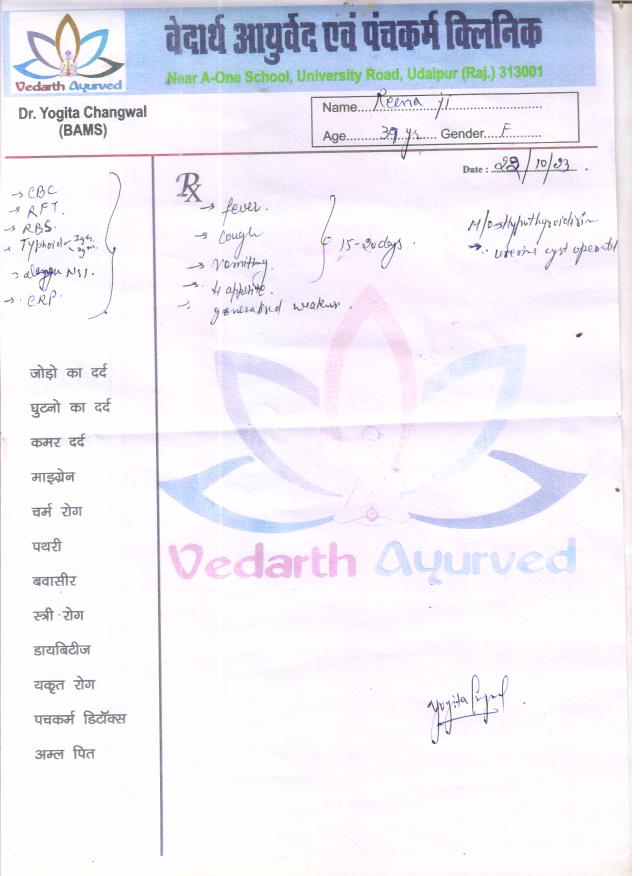 वेदार्थ आयुर्वेद एवं पंचकर्म क्लिनिक
Near A-One School, University Road, Udaipur (Raj.) 313001
Vedarth Ayurved
Dr. Yogita Changwal
(BAMS)
Name....Reena ji....
Age....39 yr.... Gender....F....
Date : 22/10/23
→ CBC
→ RFT.
→ RBS.
→ Typhoid IgG IgM
→ dengue NS1.
→ CRP.
Rx
→ fever.
→ Cough
→ Vomiting.
→ ↓ appetite.
→ generalised weakness.
15-20 days
H/O → Hypothyroidism
→ uterine cyst operated
जोड़ो का दर्द
घुटनो का दर्द
कमर दर्द
माइग्रेन
चर्म रोग
पथरी
बवासीर
स्त्री रोग
डायबिटीज
यकृत रोग
पचकर्म डिटॉक्स
अम्ल पित
Vedarth Ayurved
Yogita